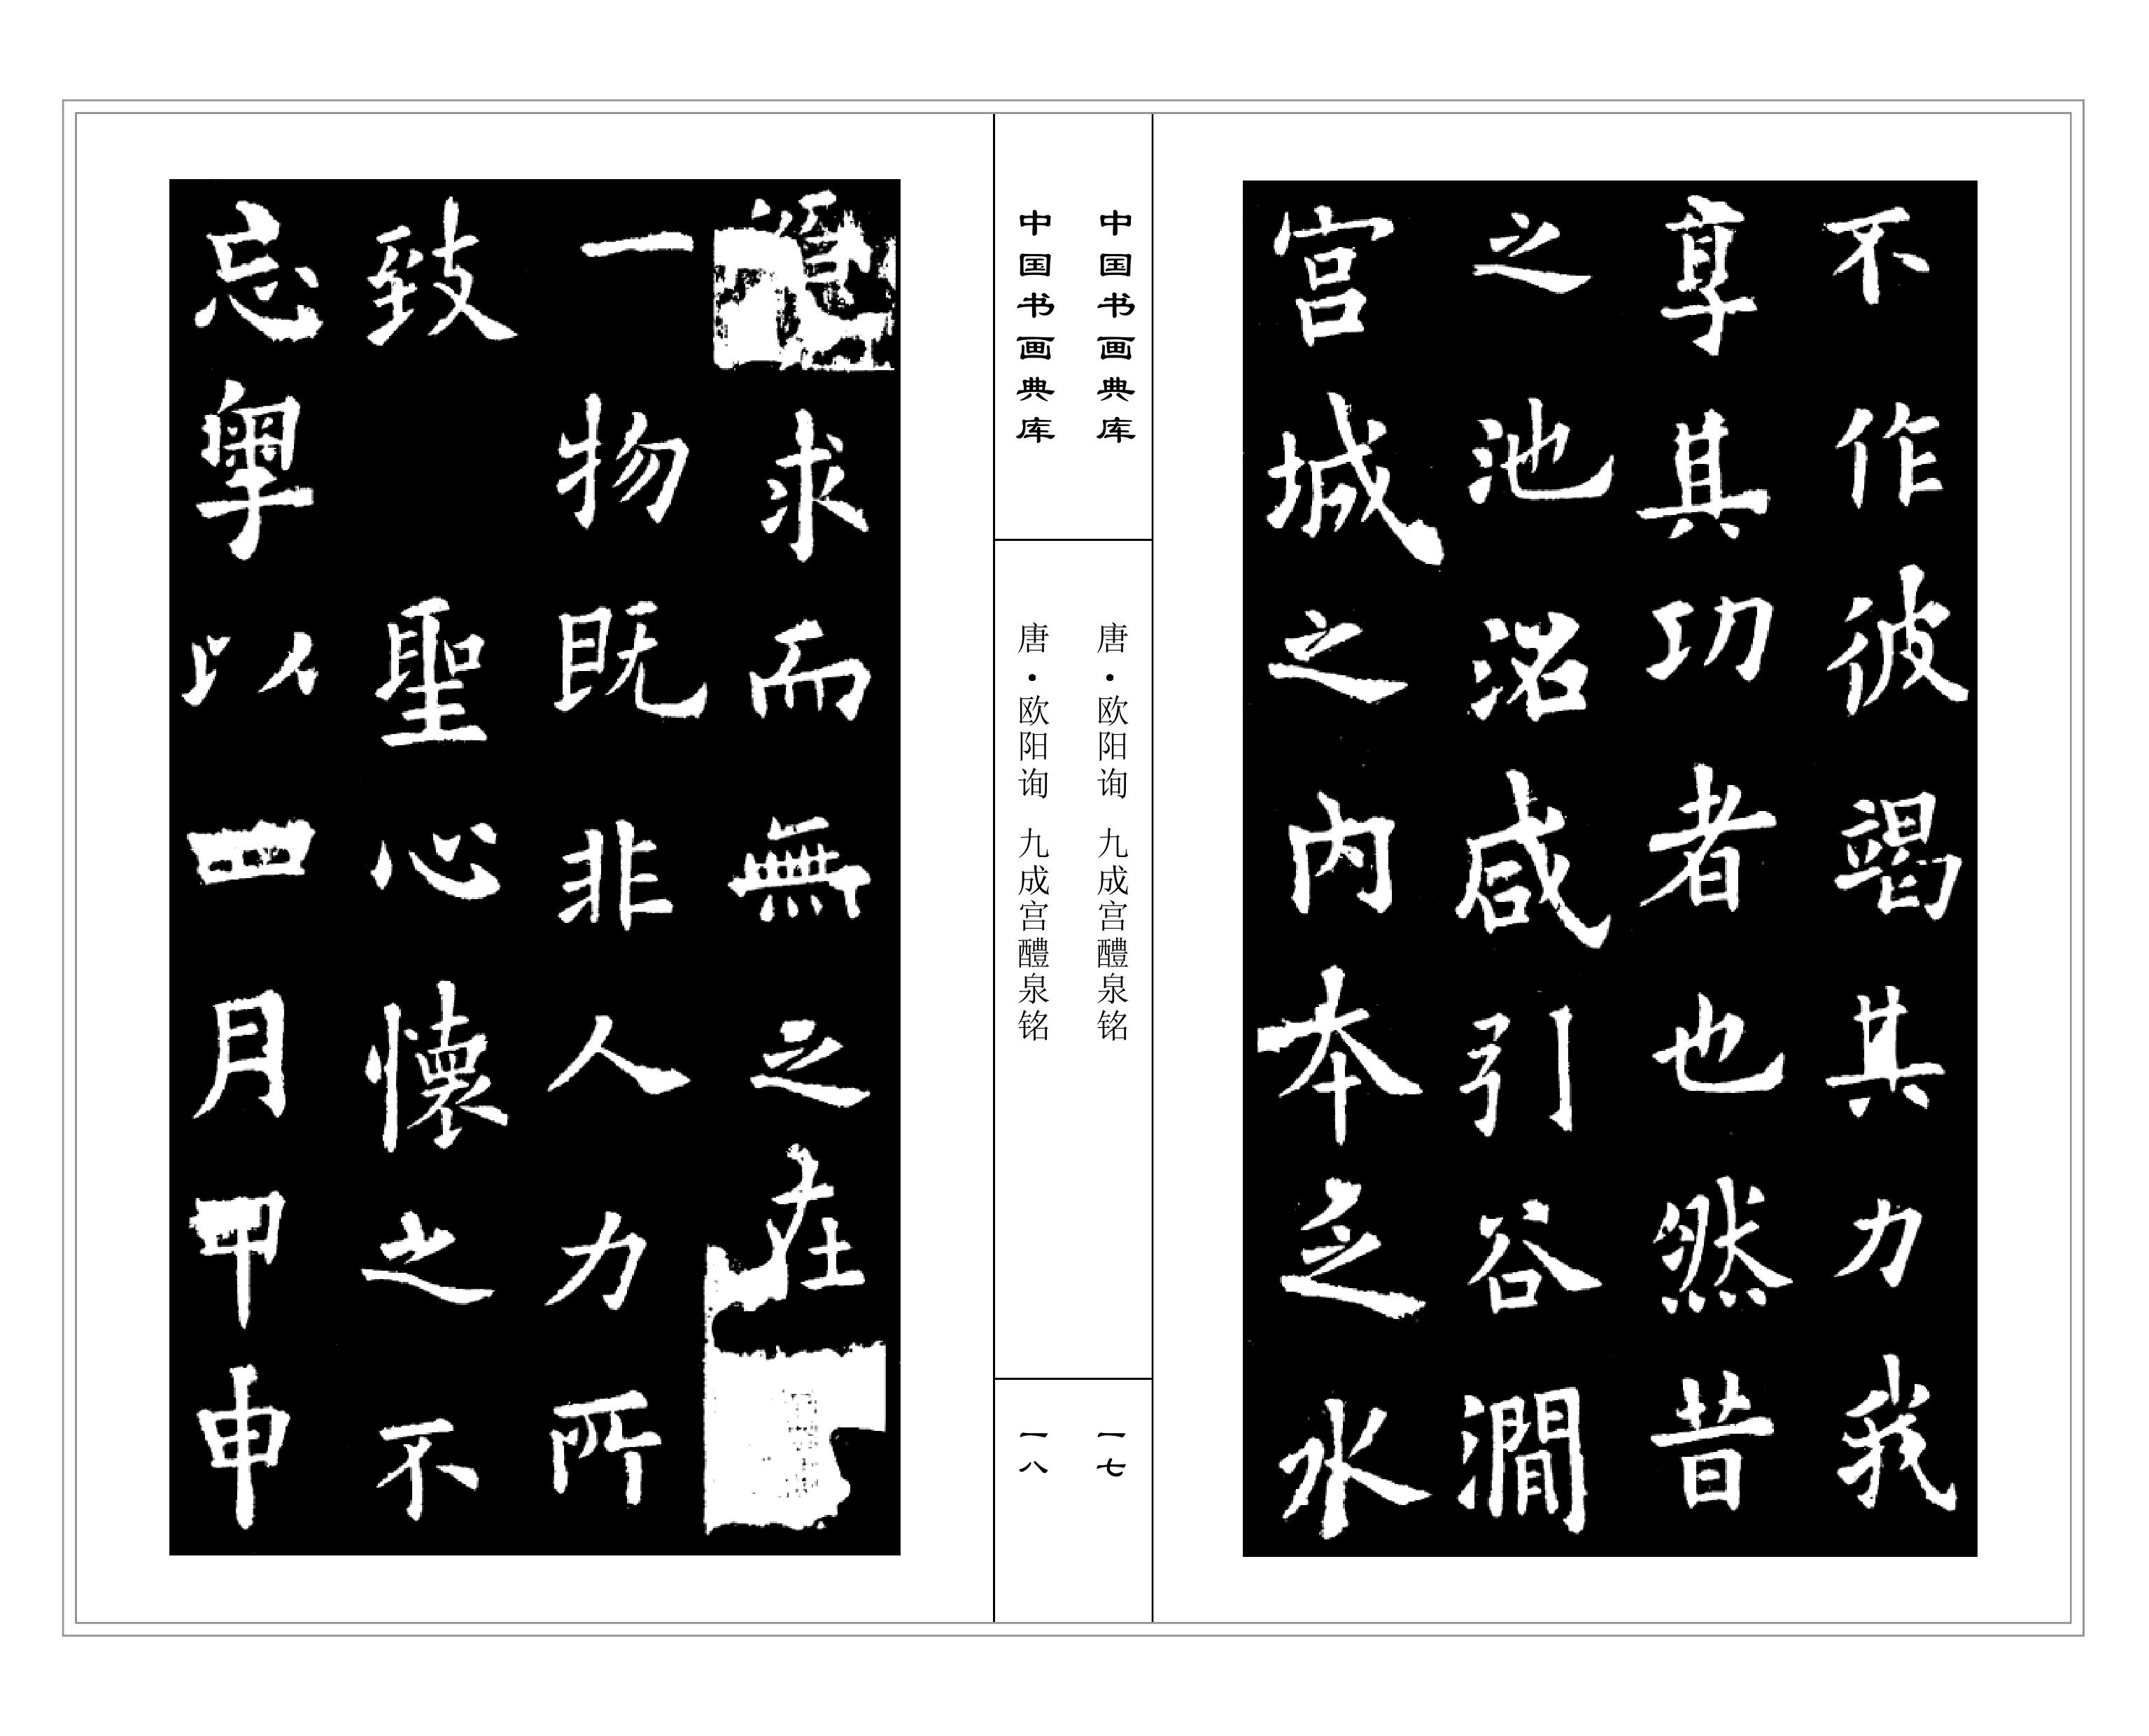 不作彼竭其力我
享其功者也然昔
之池沼咸引谷澗
宫城之内本乏水
中国书画典库
唐·欧阳询 九成宫醴泉铭
一七
中国书画典库
唐·欧阳询 九成宫醴泉铭
一八
求而無之在
一物既非人力所
致 聖心懷之不
忘粵以四月甲申